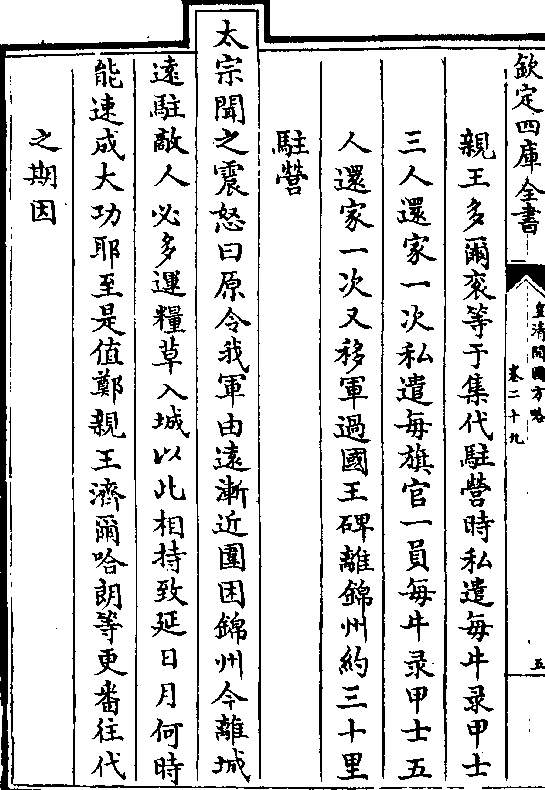 欽定四庫全書
皇清開國方略
卷二十九
五
親王多爾衮等于集代駐營時私遣每牛录甲士
三人還家一次私遣每旗官一員每牛录甲士五
人還家一次又移軍過國王碑離錦州約三十里
駐營
太宗聞之震怒曰原令我軍由遠漸近圍困錦州今離城
遠駐敵人必多運糧草入城以此相持致延日月何時
能速成大功耶至是值鄭親王濟爾哈朗等更番往代
之期因